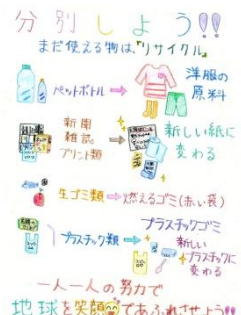 分別しよう!!
まだ使える物は、『リサイクル』
ペットボトル
洋服の
原料
新聞
雑誌
プリント類
新しい紙に
変わる
生ゴミ類
燃えるゴミ(赤い袋)
プラスチックゴミ
プラスチック類
新しい
プラスチックに
変わる
一人一人の努力で
地球を笑顔であふれさせよう!!